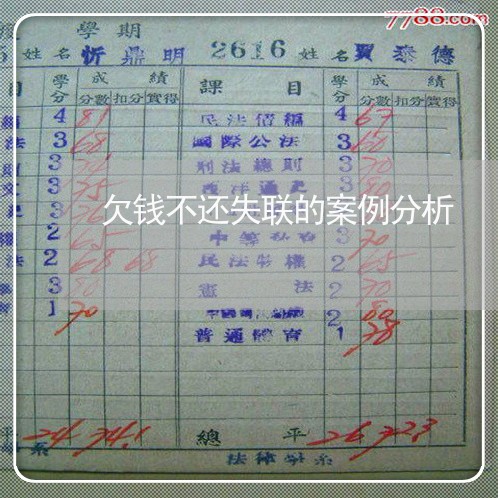 7788.com
學期
5 姓名 忻鼎明 2616 姓名 賈泰德
目 學分 成績 課目 學分 成績
分數 扣分 實得 分數 扣分 實得
4 81 民法債編 4 67
法 3 68 國際公法 3 60
3 刑法總則 3 70
文 3 75 西洋通史 3 80
欠钱不还失联的案例分析
2 65 3 70
法 2 68 68 民法物權 2 65
3 80 憲法 2 70
1 70 2 80
普通體育 1 78
平 24 74.1 總平 26 72.3
系 法律學系